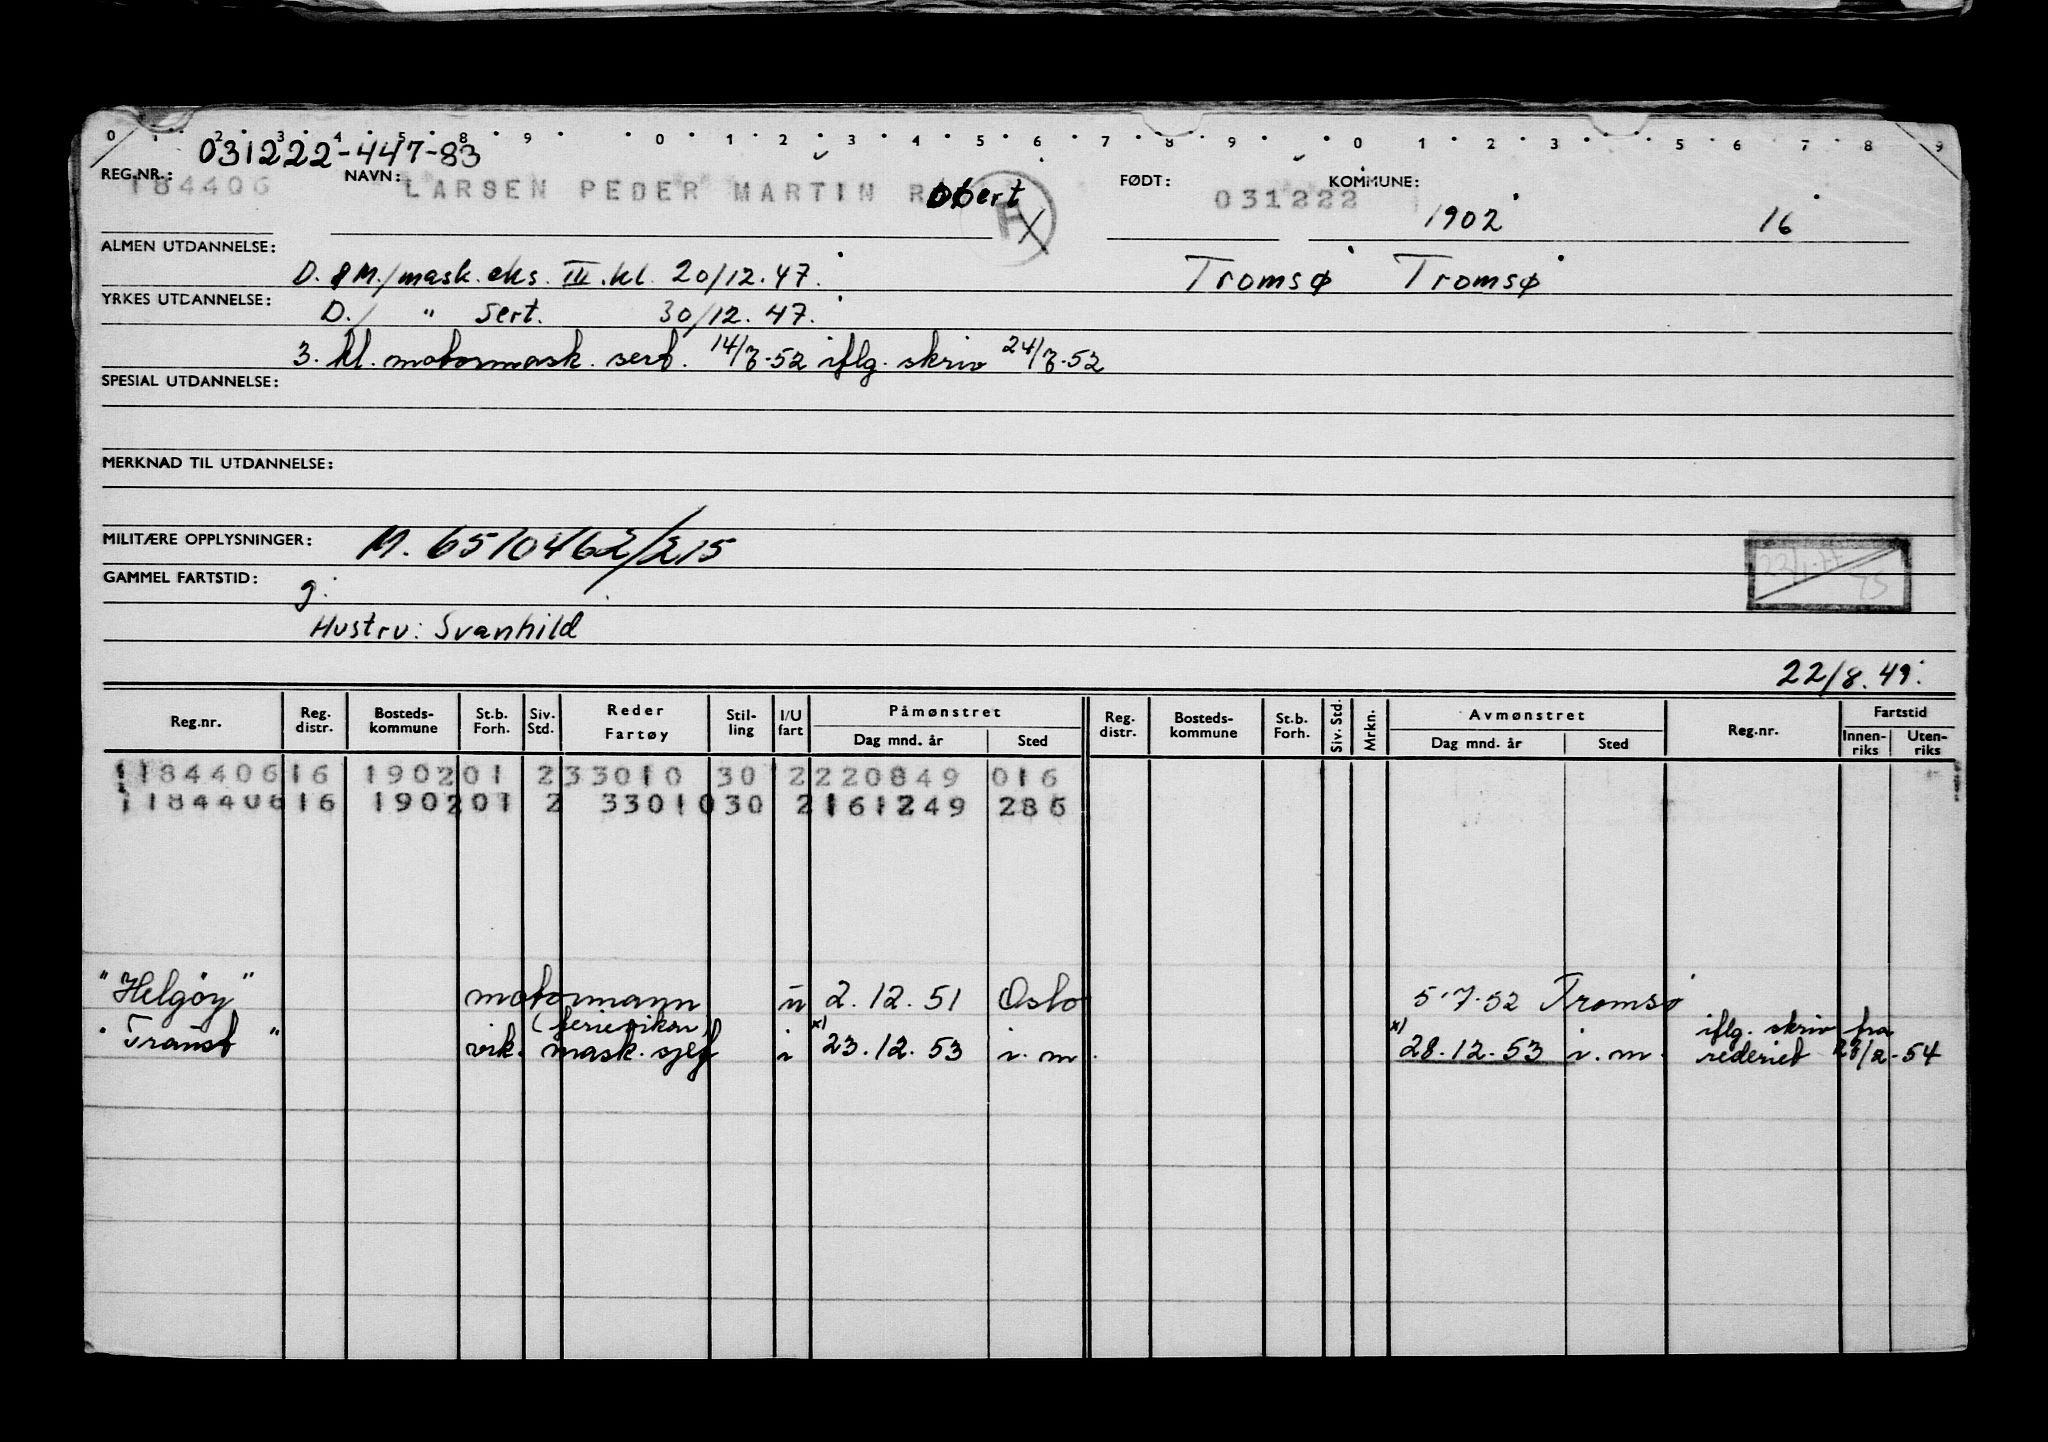 0 1 2 3 4 5 8 9 0 1 2 3 4 5 6 7 8 9 0 1 2 3 4 5 6 7 8 9
031222-447-83
REG.NR.: 184406 NAVN: LARSEN PEDER MARTIN Robert FØDT: 031222 KOMMUNE:
1902 16
ALMEN UTDANNELSE:
D. & M./mask. eks. III. kl. 20/12.47. Tromsø Tromsø
YRKES UTDANNELSE:
D./ " Sert. 30/12.47.
3. kl. motormask. sert. 14/7-52 iflg. skriv 24/7-52
SPESIAL UTDANNELSE:
MERKNAD TIL UTDANNELSE:
MILITÆRE OPPLYSNINGER: M. 6510462/215
GAMMEL FARTSTID: g.
Hustru: Svanhild
22/8.49.
Reg.nr. Reg. distr. Bosteds-kommune St.b. Forh. Siv. Std. Reder Fartøy Stil-ling I/U fart Påmønstret Dag mnd. år Sted Reg. distr. Bosteds-kommune St.b. Forh. Siv. Std. Mrkn. Avmønstret Dag mnd. år Sted Reg.nr. Fartstid Innen-riks Uten-riks
1184406 16 1902 01 2 33010 30 2 220849 016
1184406 16 1902 01 2 33010 30 2 161249 286
"Helgøy" motormann u 2.12.51 Oslo 5.7.52 Tromsø
"Traust" (ferievikar) vik. mask. sjef i x) 23.12.53 i.m. x) 28.12.53 i.m. iflg. skriv fra
rederiet -54